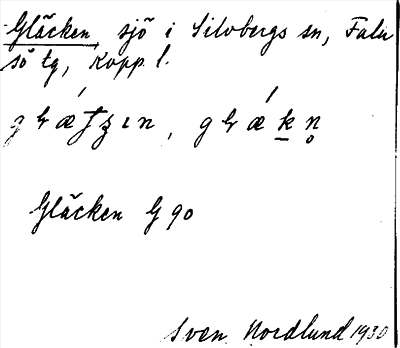 Gläcken, sjö i Silvbergs sn, Falu
sö tg, Kopp. l.
Gläcken G 90
Sven Nordlund 1930